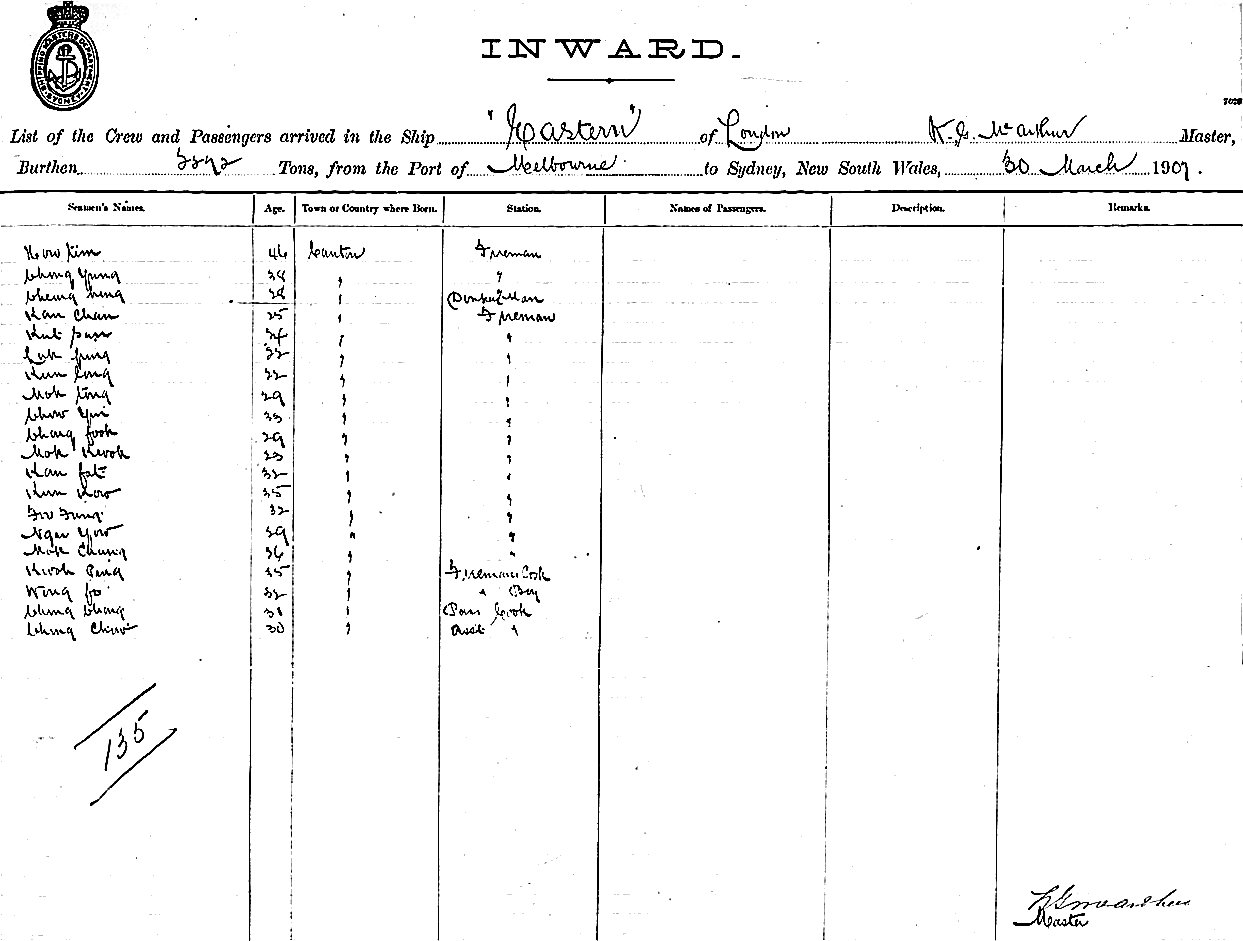 SHIPPING MASTER'S DEPARTMENT SYDNEY
INWARD.
7028
List of the Crew and Passengers arrived in the Ship "Eastern" of London K. G. McArthur Master,
Burthen Tons, from the Port of Melbourne to Sydney, New South Wales, 30 March 1907.
Seamen's Names. Age. Town or Country where Born. Station. Names of Passengers. Description. Remarks.
How Kim 46 Canton Fireman
Chong Yung 38 " "
Cheung 28 " Donkeyman
Kan Chan 25 " Fireman
34 " "
Luk 32 " "
Kun 32 " "
Mok Tong 29 " "
Chow Yui 33 " "
Chong Fook 29 " "
Mok Kwok 23 " "
Kan Fat 32 " "
Kun Kow 35 " "
32 " "
Ngan Yow 39 " "
Mok Chung 36 " "
Kwok 35 " Firemans Cook
Wing Fo 32 " " Boy
Chung Chong 31 " Pass Cook
Chung Chow 30 " Asst "
135
Master